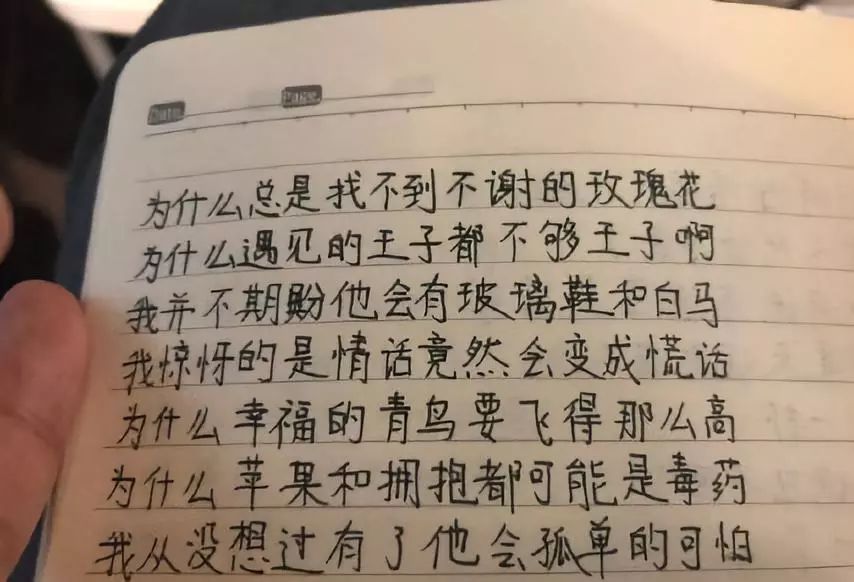 Date
Page
为什么总是找不到不谢的玫瑰花
为什么遇见的王子都不够王子啊
我并不期盼他会有玻璃鞋和白马
我惊讶的是情话竟然会变成慌话
为什么幸福的青鸟要飞得那么高
为什么苹果和拥抱都可能是毒药
我从没想过有了他会孤单的可怕